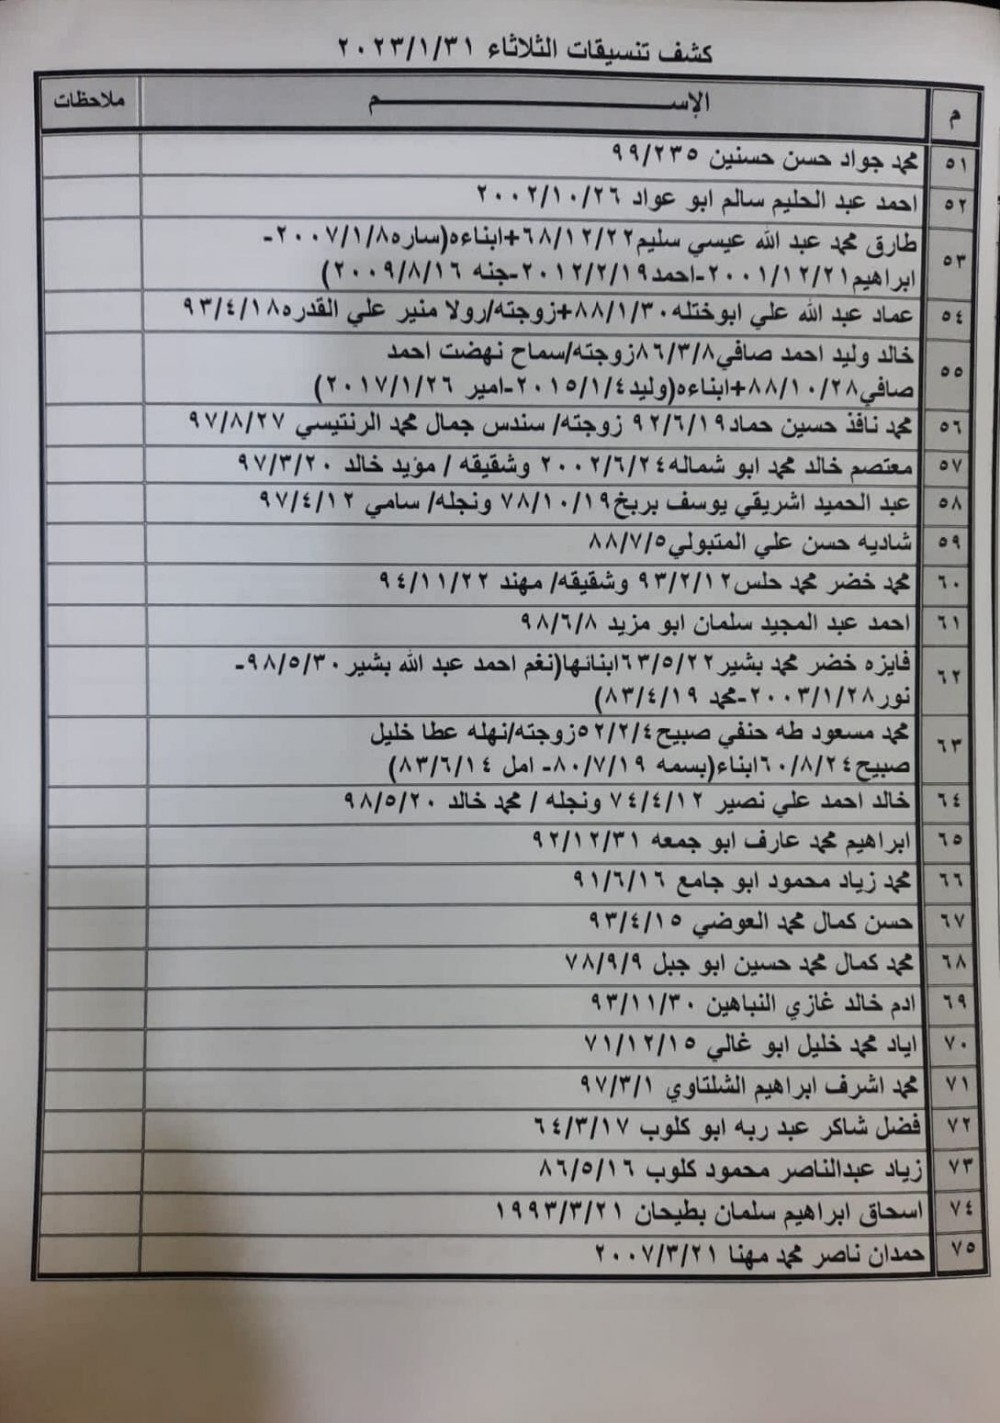 كشف تنسيقات الثلاثاء ٢٠٢٣/١/٣١
م الإســــــم ملاحظات
٥١ محمد جواد حسن حسنين ٩٩/٢٣٥
٥٢ احمد عبد الحليم سالم ابو عواد ٢٠٠٢/١٠/٢٦
٥٣ طارق محمد عبد الله عيسي سليم٦٨/١٢/٢٢+ابناءه(ساره٢٠٠٧/١/٨-
ابراهيم٢٠٠١/١٢/٢١-احمد٢٠١٢/٢/١٩-جنه ٢٠٠٩/٨/١٦)
٥٤ عماد عبد الله علي ابوختله٨٨/١/٣٠+زوجته/رولا منير علي القدره٩٣/٤/١٨
٥٥ خالد وليد احمد صافي٨٦/٣/٨زوجته/سماح نهضت احمد
صافي٨٨/١٠/٢٨+ابناءه(وليد٢٠١٥/١/٤-امير ٢٠١٧/١/٢٦)
٥٦ محمد نافذ حسين حماد٩٢/٦/١٩ زوجته/ سندس جمال محمد الرنتيسي ٩٧/٨/٢٧
٥٧ معتصم خالد محمد ابو شماله٢٠٠٢/٦/٢٤ وشقيقه / مؤيد خالد ٩٧/٣/٢٠
٥٨ عبد الحميد اشريقي يوسف بربخ٧٨/١٠/١٩ ونجله/ سامي ٩٧/٤/١٢
٥٩ شاديه حسن علي المتبولي٨٨/٧/٥
٦٠ محمد خضر محمد حلس٩٣/٢/١٢ وشقيقه/ مهند ٩٤/١١/٢٢
٦١ احمد عبد المجيد سلمان ابو مزيد ٩٨/٦/٨
٦٢ فايزه خضر محمد بشير٦٣/٥/٢٢ابنائها(نغم احمد عبد الله بشير٩٨/٥/٣٠-
نور٢٠٠٣/١/٢٨-محمد ٨٣/٤/١٩)
٦٣ محمد مسعود طه حنفي صبيح٥٢/٢/٤زوجته/نهله عطا خليل
صبيح٦٠/٨/٢٤ابناء(بسمه ٨٠/٧/١٩- امل ٨٣/٦/١٤)
٦٤ خالد احمد علي نصير ٧٤/٤/١٢ ونجله / محمد خالد ٩٨/٥/٢٠
٦٥ ابراهيم محمد عارف ابو جمعه ٩٢/١٢/٣١
٦٦ محمد زياد محمود ابو جامع ٩١/٦/١٦
٦٧ حسن كمال محمد العوضي ٩٣/٤/١٥
٦٨ محمد كمال محمد حسين ابو جبل ٧٨/٩/٩
٦٩ ادم خالد غازي النباهين ٩٣/١١/٣٠
٧٠ اياد محمد خليل ابو غالي ٧١/١٢/١٥
٧١ محمد اشرف ابراهيم الشلتاوي ٩٧/٣/١
٧٢ فضل شاكر عبد ربه ابو كلوب ٦٤/٣/١٧
٧٣ زياد عبدالناصر محمود كلوب ٨٦/٥/١٦
٧٤ اسحاق ابراهيم سلمان بطيحان ١٩٩٣/٣/٢١
٧٥ حمدان ناصر محمد مهنا ٢٠٠٧/٣/٢١